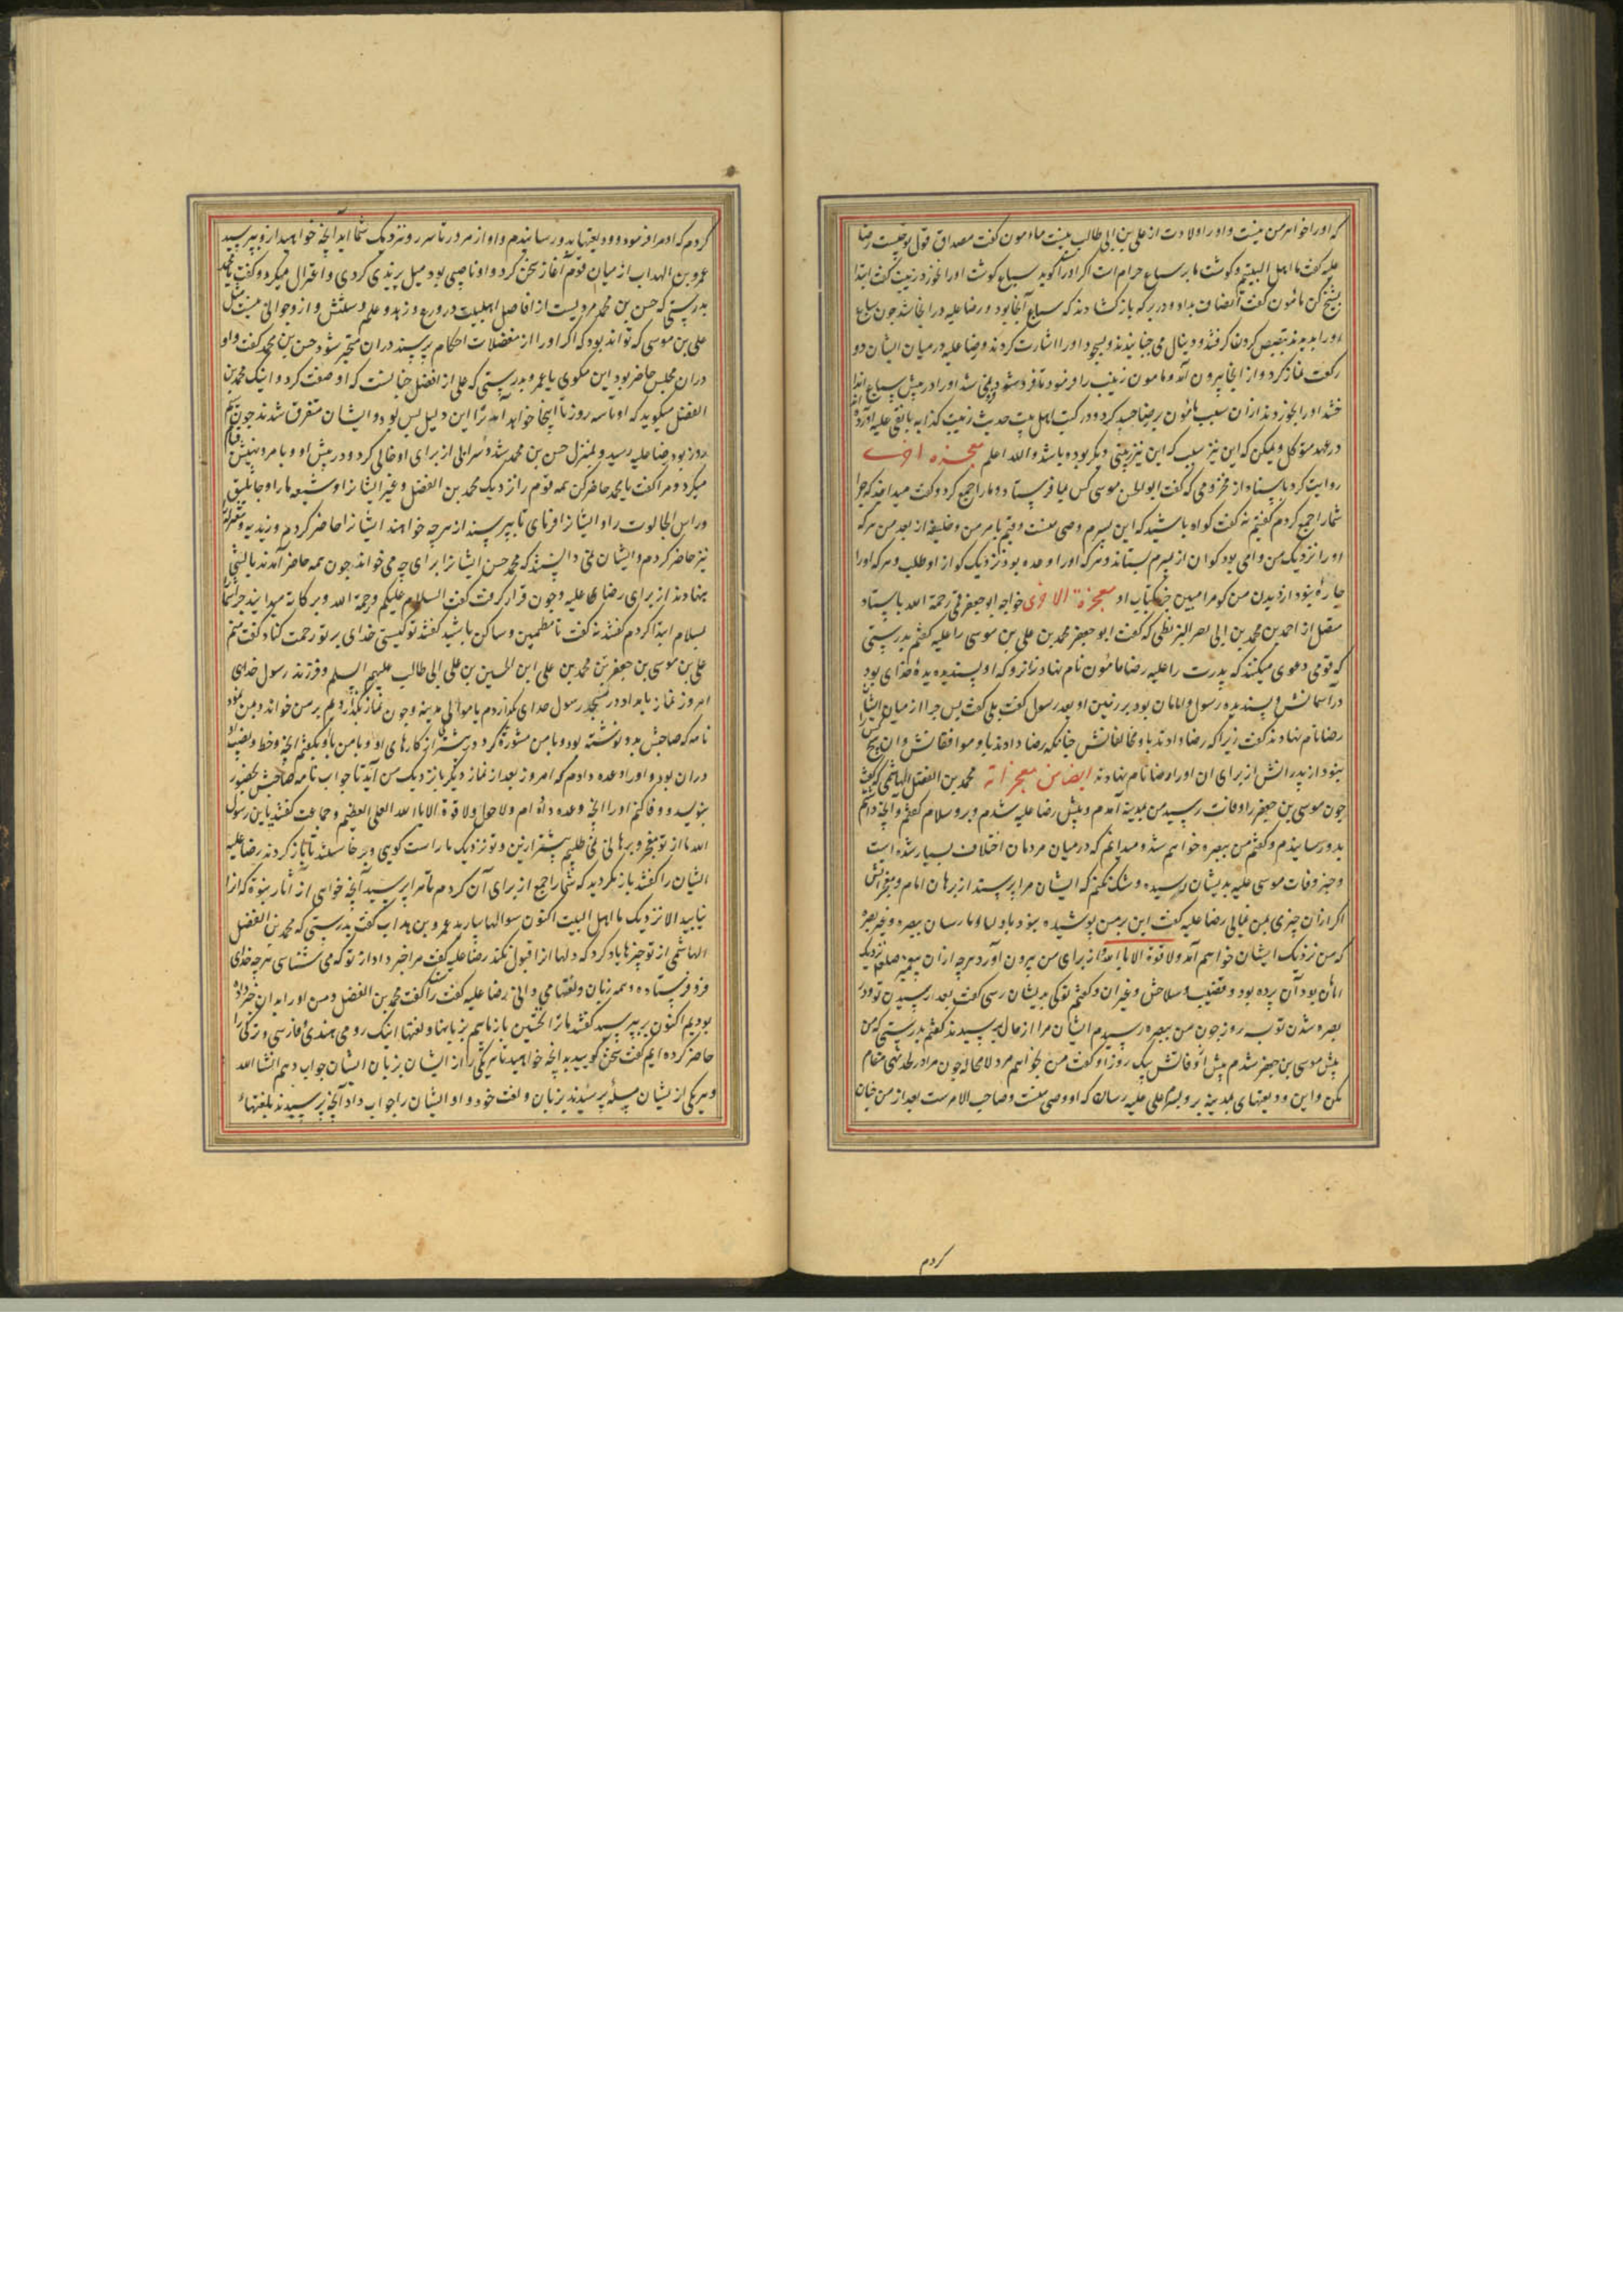 که او را خواهر من نیست و او را ولادت از علی بن ابی طالب نیست مامون گفت مصداق قول تو چیست رضا
علیه گفت ما اهل البیتیم و گوشت ما بر سباع حرام است اگر او راست گوید سباع گوشت او را نخورد زینب گفت ابتدا
بشیخ کن مامون گفت انصاف بداد و در برکه باز گشادند که سباع آنجا بود و رضا علیه در آنجا شد چون سباع
او را بدیدند تبصبص کردن گرفتند و دنبال می جنبانیدند و بسجود او را اشارت کردند و رضا علیه در میان ایشان دو
رکعت نماز کرد و از آنجا بیرون آمد و مامون زینب را فرمود تا فرو شود نمی شد او را در پیش سباع انداختند
او را بخوردند از آن سبب مامون بر رضا حسد کرد و در کتب اهل بیت حدیث زینب کذابه با نقی علیه آورده اند
در عهد متوکل و یمکن که این نیز زینبی دیگر بوده باشد والله اعلم معجزه اخری
روایت کرد باسناد از مخزومی که گفت ابوالحسن موسی کس بما فرستاد و ما را جمع کرد و گفت میدانید که چرا
شما را جمع کردم گفتیم نه گفت گواه باشید که این پسرم وصی منست و قیم بامر من و خلیفه از بعد من هر که
او را نزدیک من وامی بود گو آن از پسرم بستاند و هر که او را وعده بود نزدیک گو از او طلب و هر که او را
چاره نبود از دیدن من گو مرا مبین جز بکتاب او معجزة الاخری خواجه ابو جعفر قمی رحمة الله باسناد
متصل از احمد بن محمد بن ابی نصر البزنطی که گفت ابو جعفر محمد بن علی بن موسی را علیه گفتم بدرستی
که قومی دعوی میکنند که پدرت را علیه رضا مامون نام نهاد زانرو که او پسندیده خدای بود
در آسمانش و پسندیده رسول و امامان بود بر زمین او بعد رسول گفت بلی گفت پس چرا از میان ایشان
رضا نام نهادند گفت زیرا که رضا دادند باو مخالفانش چنانکه رضا دادند باو موافقانش و این هیچکس را
نبود از پدرانش از برای آن او را رضا نام نهادند ایضا من معجزاته محمد بن الفضل الهاشمی گفت
چون موسی بن جعفر را وفات رسید من بمدینه آمدم و پیش رضا علیه شدم و برو سلام گفتم و آنچه داشتم
بدو رسانیدم و گفتم من ببصره خواهم شد و میدانم که در میان مردمان اختلاف بسیار شده است
و خبر وفات موسی علیه بدیشان رسیده و شک نکنم که ایشان مرا پرسند از برهان امام و معجزاتش
اگر از آن چیزی بمن نمائی رضا علیه گفت این بر من پوشیده نبود باولیا و ما رسان ببصره و غیر بصره
که من نزدیک ایشان خواهم آمد ولا قوة الا بالله از برای من بیرون آورد هر چه از آن پیغمبر صلعم نزدیک
امامان بود از برده بود و قضیب و سلاحش و غیر آن و گفتم تو کی بدیشان رسی گفت بعد از رسیدن تو در
بصره شدن تو بسه روز چون من ببصره رسیدم ایشان مرا از حال پرسیدند گفتم بدرستی که من
پیش موسی بن جعفر شدم پیش از وفاتش بیک روز او گفت من بخواهم مرد لا محاله چون مرا در لحد نهی مقام
مکن و این ودیعتهای بمدینه بر و بپسرم علی علیه رسان که او وصی منست و صاحب الامرست بعد از من چنان
کردم
کردم که او مرا فرموده و ودیعتها بدو رسانیدم و او از امروز تا سه روز نزدیک شما آید آنچه خواهید از و بپرسید
عمرو بن الهداب از میان قوم آغاز سخن کرد و او ناصبی بود میل بزیدی کردی و اعتزال میکرد و گفت یا محمد
بدرستی که حسن بن محمد مردیست از افاضل اهل بیت در ورع و زهد و علم و سنش و از جوانی نیست مثل
علی بن موسی که تواند بود که اگر او را از معضلات احکام پرسند در آن متحیر شود حسن بن محمد گفت و او
در آن مجلس حاضر بود این مگوی یا عمرو بدرستی که علی از افضل چنانست که او صفت کرد و اینک محمد بن
الفضل میگوید که او تا سه روز تا اینجا خواهد آمد ترا این دلیل بس بود و ایشان متفرق شدند چون سیم
روز بود رضا علیه رسید و بمنزل حسن بن محمد شد و سرائی از برای او خالی کرد و در پیش او و بامر و نهیش قیام
میکرد و مرا گفت یا محمد حاضر کن همه قوم را از نزدیک محمد بن الفضل و غیر ایشان از شیعه ما را و جاثلیق
و راس الجالوت را و ایشان را فرمای تا بپرسند از هر چه خواهند ایشان را حاضر کردم و زیدیه و معتزله
نیز حاضر کردم و ایشان نمی دانستند که محمد حسن ایشان را برای چه می خواند چون همه حاضر آمدند بالشی
بنهادند از برای رضا علیه و چون قرار گرفت گفت السلام علیکم و رحمة الله و برکاته میدانید چرا شما
بسلام ابتدا کردم گفتند نه گفت تا مطمئن و ساکن باشید گفتند تو کیستی خدای بر تو رحمت کناد گفت منم
علی بن موسی بن جعفر بن محمد بن علی ابن الحسین بن علی ابی طالب علیهم السلم و فرزند رسول خدای
امروز نماز بامداد در مسجد رسول خدای گزاردم با موالی مدینه و چون نماز بگزاردیم بر من خواند و بمن نمود
نامه که صاحبش بدو نوشته بود و با من مشورة کرد در بیشتر از کارهای او و با من باو بگفتم آنچه و خط و نصیب او
در آن بود و او را وعده دادم که امروز بعد از نماز دیگر باز نزدیک من آید تا جواب نامه صاحبش بحضور
بنویسد و وفا کنم او را آنچه وعده داده ام ولا حول ولا قوة الا بالله العلی العظیم و جماعت گفتند یا ابن رسول
الله ما از تو معجز و برهانی نمی طلبیم بیشتر ازین و تو نزدیک ما راست گویی و برخاستند تا باز گردند رضا علیه
ایشان را گفت باز مگردید که شما را جمع از برای آن کردم تا مرا بپرسید آنچه خواهی از آثار نبوة که آنرا
نیابید الا نزدیک ما اهل البیت اکنون سوالها بیارید عمرو بن هداب گفت بدرستی که محمد بن الفضل
الهاشمی از تو چیزها یاد کرد که دلها آنرا قبول نکند رضا علیه گفت مرا خبر داد از تو که می شناسی هر چه خدای
فرو فرستاده و همه زبان و لغتها می دانی رضا علیه گفت راست گفت محمد بن الفضل و من او را بدان خبر داده
بودیم اکنون بپرسید گفتند ما ترا نخستین بیازماییم بزبانها و لغتها اینک رومی هندی و فارسی و ترکی را
حاضر کرده ایم گفت سخن گویید بدانچه خواهید تا هر یکی را از ایشان بزبان ایشان جواب دهم انشا الله
و هر یکی از یشان مسئله پرسیدند بزبان و لغت خود و او ایشان را جواب داد آنچه پرسیدند بلغتهاء